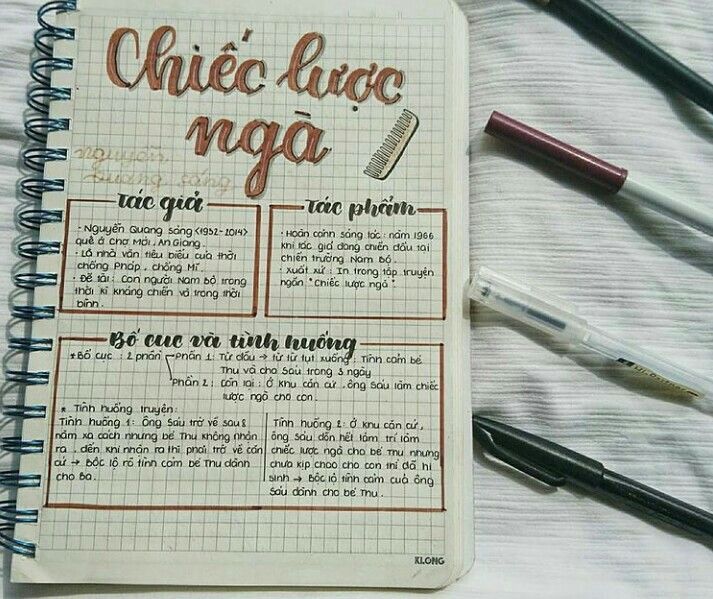 Chiếc lược
ngà
nguyễn
quang sáng
tác giả
- Nguyễn Quang Sáng <1952-2014>
quê ở chợ Mới, An Giang.
- Là nhà văn tiêu biểu của thời
chống Pháp, chống Mĩ.
- Đề tài: Con người Nam Bộ trong
thời kì kháng chiến và trong thời
bình.
tác phẩm
- Hoàn cảnh sáng tác: năm 1966
khi tác giả đang chiến đấu tại
chiến trường Nam Bộ.
- Xuất xứ: In trong tập truyện
ngắn "Chiếc lược ngà".
Bố cục và tình huống
* Bố cục: 2 phần Phần 1: Từ đầu → từ từ tụt xuống: Tình cảm bé
Thu và cha Sáu trong 3 ngày
Phần 2: còn lại: Ở khu căn cứ, ông Sáu làm chiếc
lược ngà cho con.
* Tình huống truyện:
Tình huống 1: Ông Sáu trở về sau 8
năm xa cách nhưng bé Thu không nhận
ra, đến khi nhận ra thì phải trở về căn
cứ → Bộc lộ rõ tình cảm bé Thu dành
cho Ba.
Tình huống 2: Ở khu căn cứ,
ông Sáu dồn hết tâm trí làm
chiếc lược ngà cho bé Thu nhưng
chưa kịp chao cho con thì đã hi
sinh → Bộc lộ tình cảm của ông
Sáu dành cho bé Thu.
KLONG